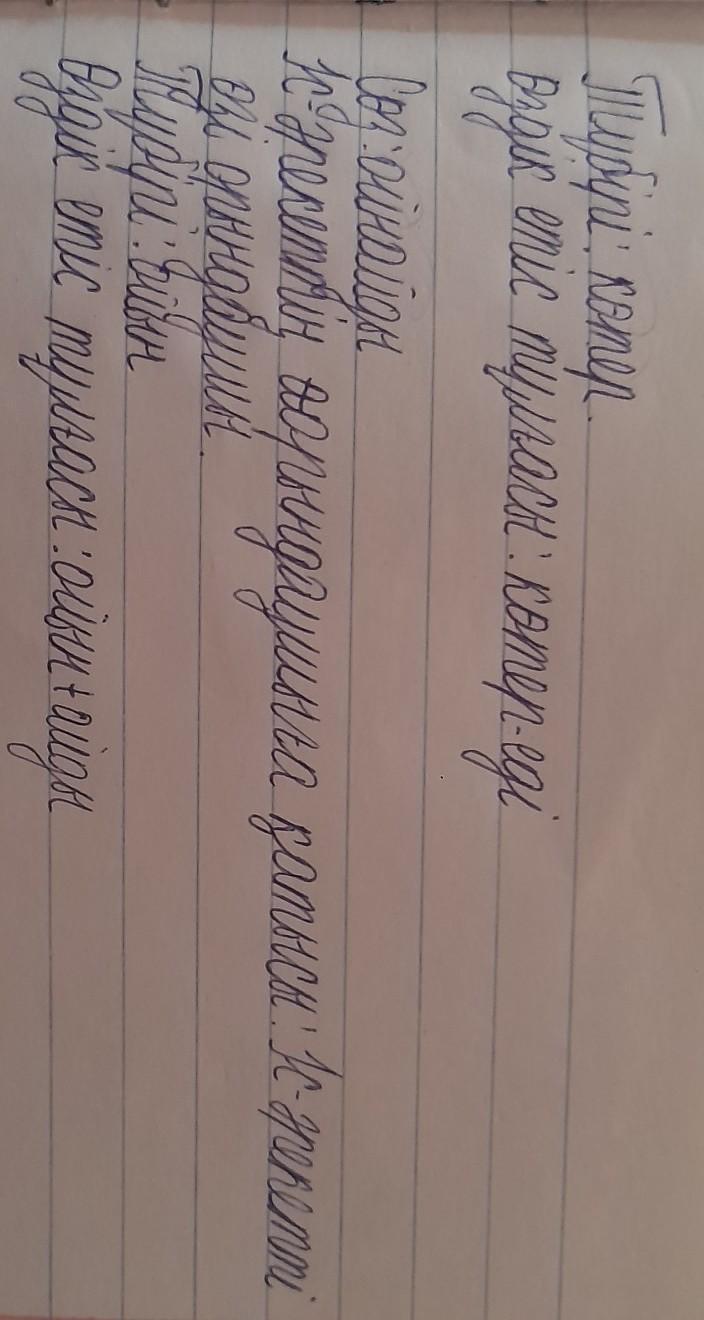 Түбірі: көтер.
өздік етіс тұлғасы: көтер-еді
Сөз: ойнайды
Іс-әрекеттің орындаушыға қатысы: Іс-әрекетті
өзі орындаушы.
Түбірі: Ойын
Өздік етіс тұлғасы: ойын+айды